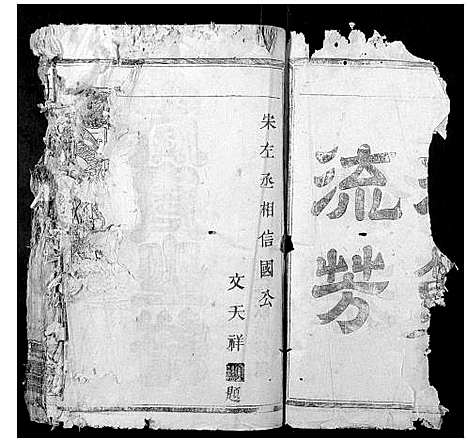 流芳
宋左丞相信國公
文天祥題